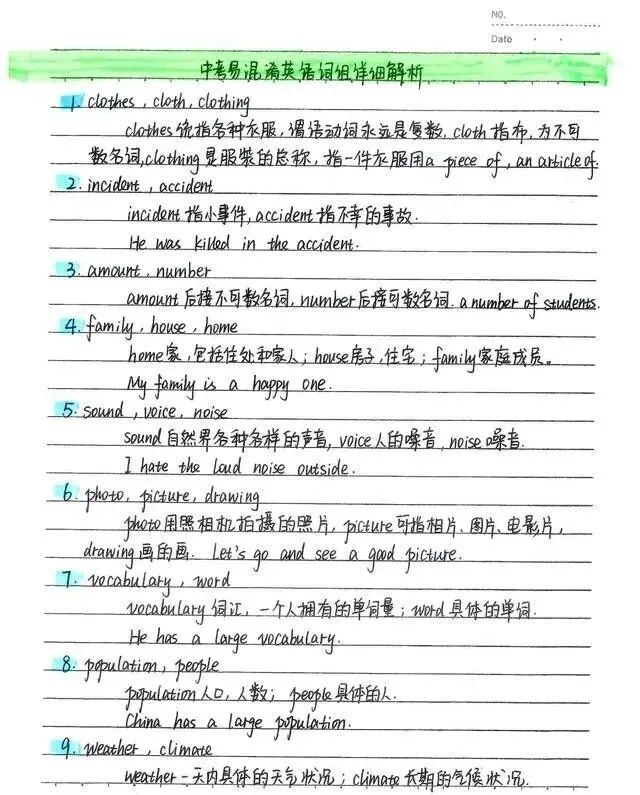 NO.
Date
中考易混淆英语词组详细解析
1. clothes, cloth, clothing
clothes统指各种衣服,谓语动词永远是复数,cloth指布,为不可
数名词,clothing是服装的总称,指一件衣服用a piece of, an article of.
2. incident, accident
incident指小事件,accident指不幸的事故.
He was killed in the accident.
3. amount, number
amount后接不可数名词,number后接可数名词. a number of students.
4. family, house, home
home家,包括住处和家人;house房子,住宅;family家庭成员。
My family is a happy one.
5. sound, voice, noise
sound自然界各种各样的声音,voice人的嗓音,noise噪音.
I hate the loud noise outside.
6. photo, picture, drawing
photo用照相机拍摄的照片,picture可指相片、图片、电影片,
drawing画的画. Let's go and see a good picture.
7. vocabulary, word
vocabulary词汇,一个人拥有的单词量;word具体的单词.
He has a large vocabulary.
8. population, people
population人口,人数;people具体的人.
China has a large population.
9. weather, climate
weather一天内具体的天气状况;climate长期的气候状况.